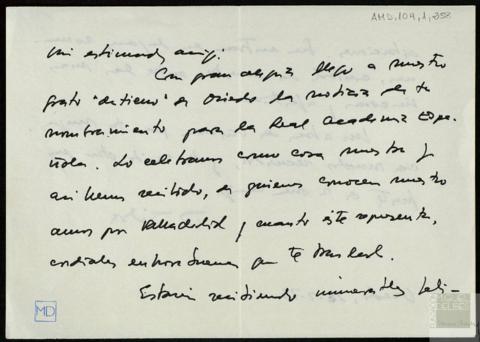 AMD, 109, 1, 358
Mi estimado amigo:
Con gran alegría llegó a nuestro
grato "destierro" de Oviedo la noticia de tu
nombramiento para la Real Academia Espa-
ñola. Lo celebramos como cosa nuestra y
así hemos recibido, de quienes conocen nuestro
amor por Valladolid y cuanto éste representa,
cordiales enhorabuenas que te traslado.
Estarás recibiendo innumerables feli-
MD